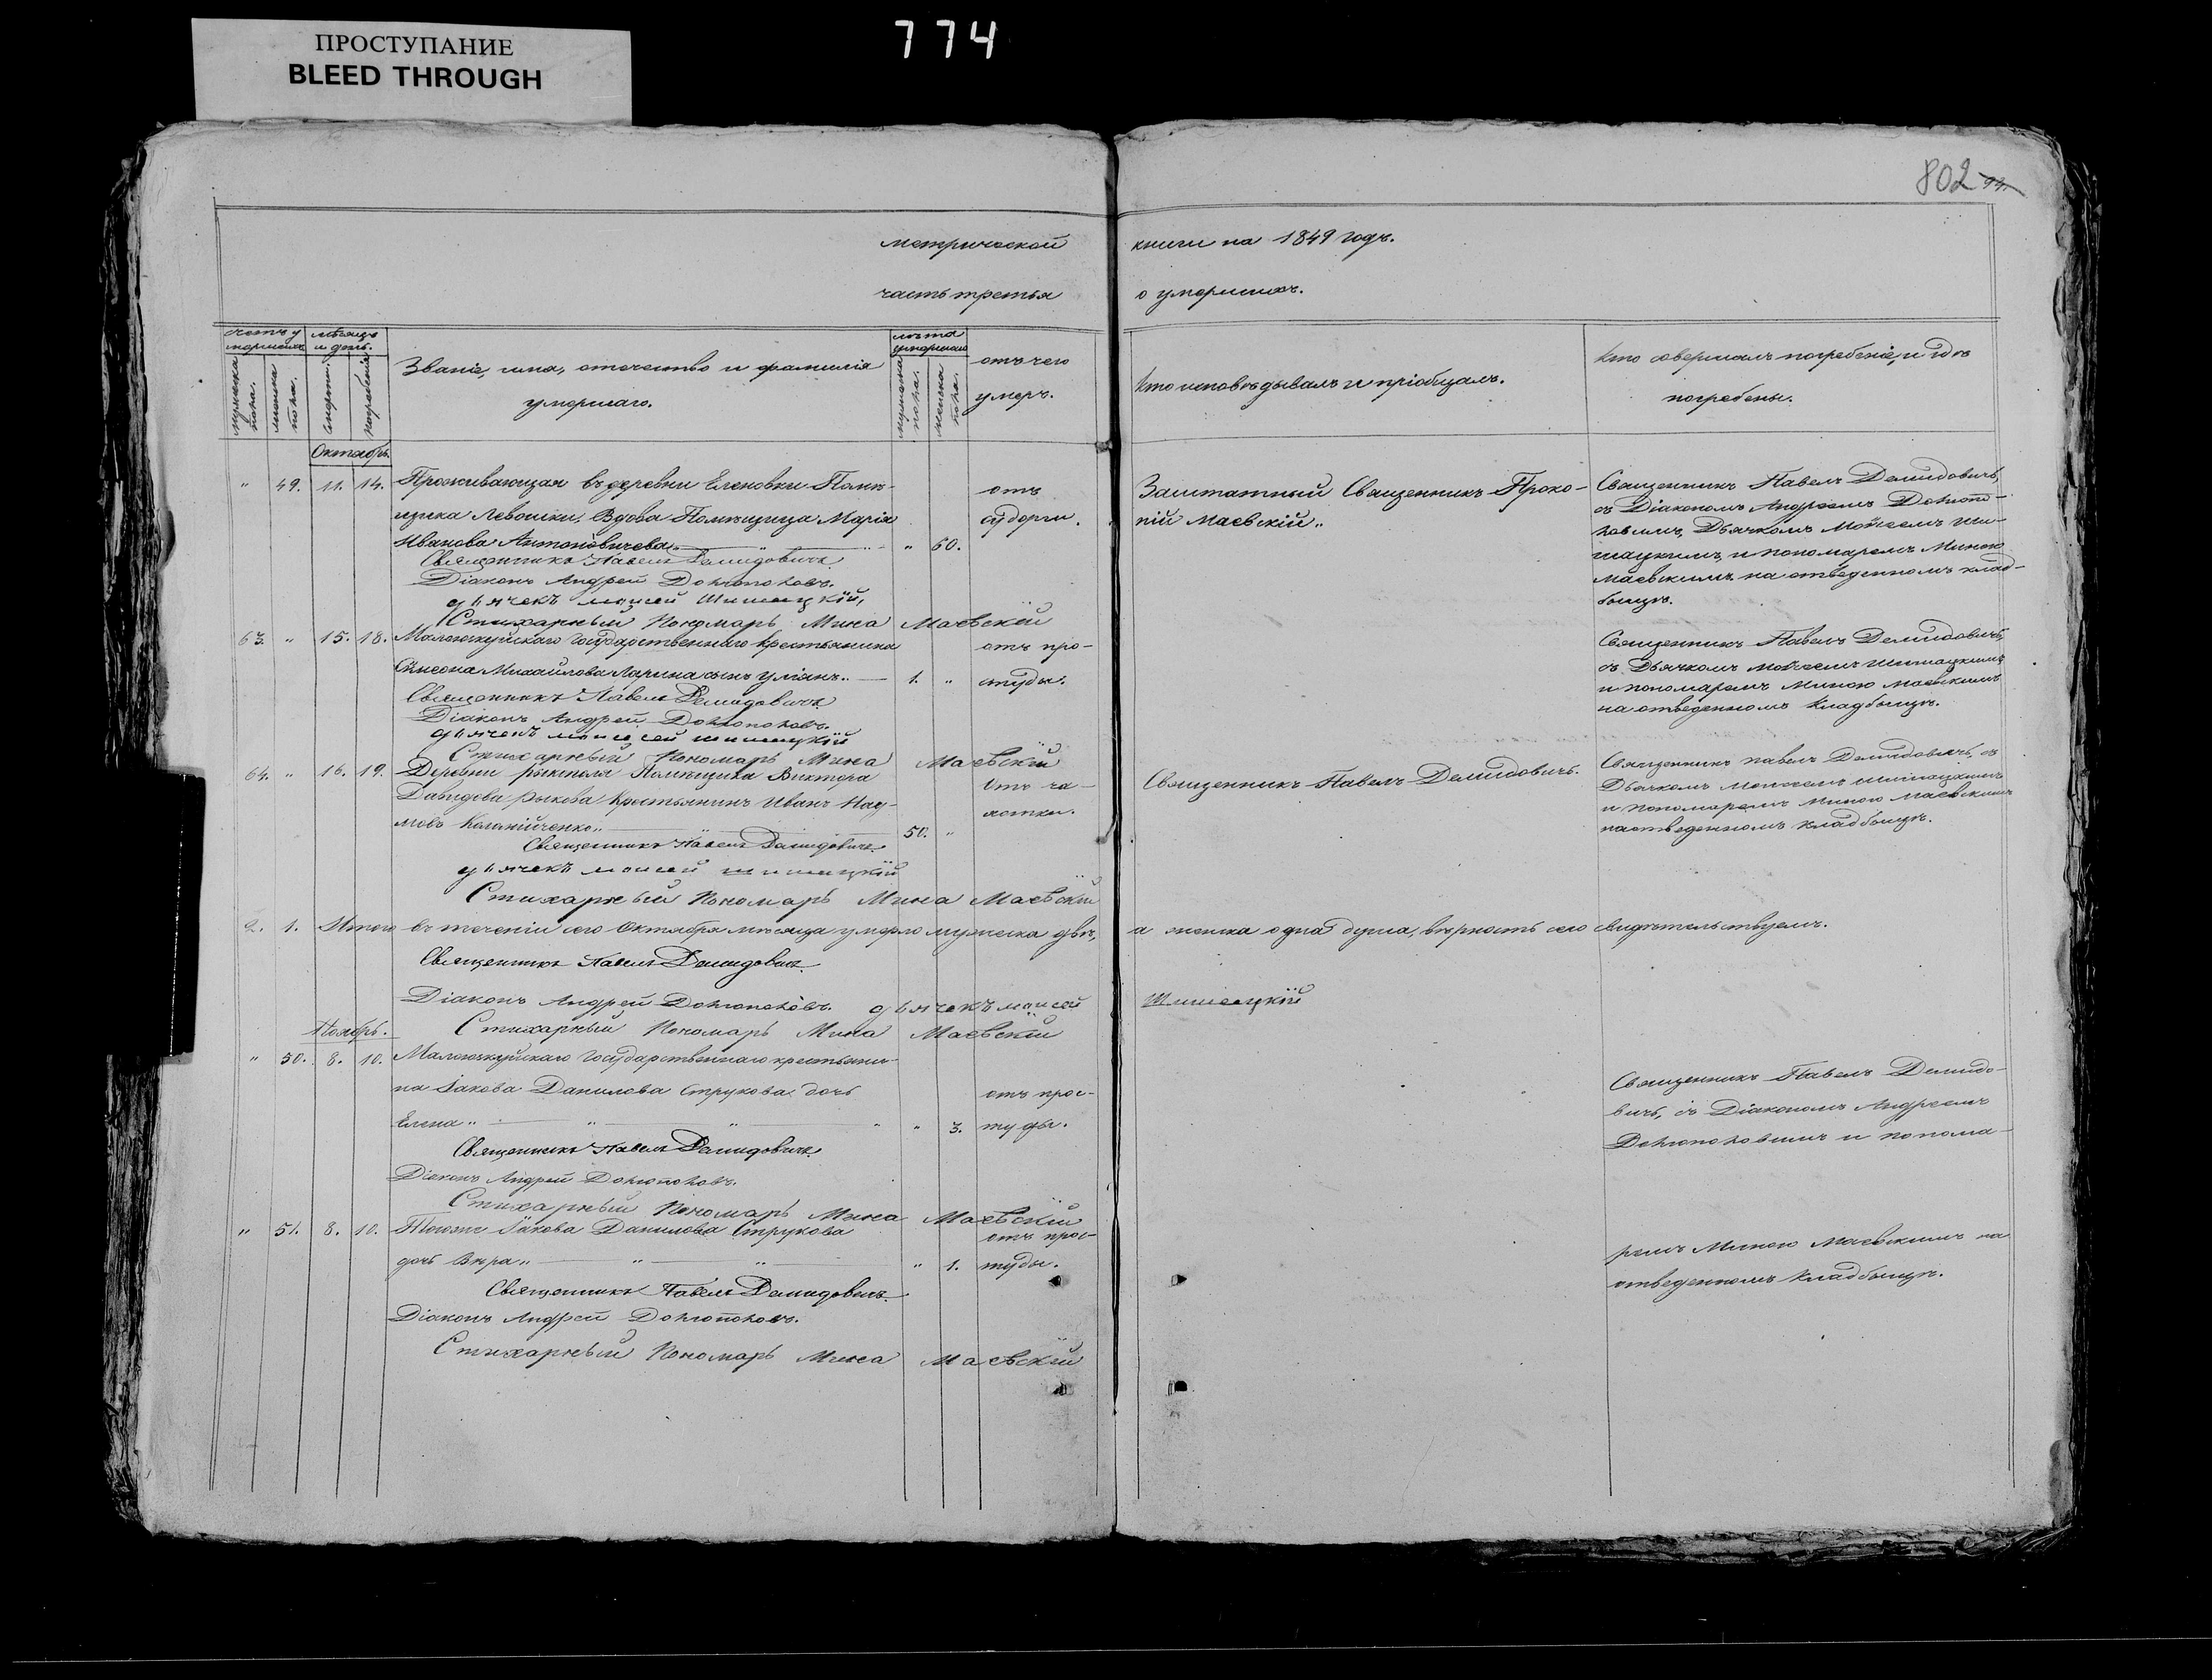 ПРОСТУПАНИЕ
BLEED THROUGH
774
802
метрической
книги на 1849 годъ.
часть третья
о умершихъ.
мѣсяцъ и день.
мужеска пола.
женска пола.
смерти.
погребенія
Званіе, имя, отечество и фамилія
умершаго.
лѣта умершаго
мужеска пола.
женска пола.
отъ чего
умеръ.
Кто исповѣдывалъ и пріобщалъ.
Кто совершалъ погребеніе, и гдѣ
погребены.
Октябрь.
" 49. 11. 14. Проживающая въ деревни Еленовки Помѣ-
щика Левошки, Вдова Помѣщица Марія
Иванова Антоновичева " 60.
отъ
судорги.
Заштатный Священникъ Проко-
пій Маевскій.
Священникъ Павелъ Демидовичъ,
съ Діакономъ Андреемъ
Дьячкомъ Мойсеемъ Ши-
шацкимъ, и пономаремъ Миною
Маевскимъ на отведенномъ клад-
бищѣ.
Священникъ Павелъ Демидовичъ
Діаконъ Андрей
дьячекъ моисей Шишацкій,
Стихарный Пономарь Мина Маевскій
63. " 15. 18. государственнаго крестьянина
Симеона Михайлова Ларина сынъ 1. "
отъ про-
студы.
Священникъ Павелъ Демидовичъ,
съ Дьячкомъ Мойсеемъ Шишацкимъ
и пономаремъ Миною Маевскимъ
на отведенномъ кладбищѣ.
Священникъ Павелъ Демидовичъ
Діаконъ Андрей
дьячекъ моисей шишацкій
Стихарный Пономарь Мина Маевскій
64. " 16. 19. Деревни Помѣщика Виктора
Давидова Рыкова Крестьянинъ Иванъ Нау-
мовъ 50. "
Отъ ча-
хотки.
Священникъ Павелъ Демидовичъ.
Священникъ павелъ Демидовичъ, съ
Дьячкомъ Моисеемъ Шишацкимъ
и Пономаремъ Миною Маевскимъ
на отведенномъ кладбищѣ.
Священникъ Павелъ Демидовичъ
дьячекъ моисей шишацкій
Стихарный Пономарь Мина Маевскій
2. 1. Итого въ теченіи сего Октября мѣсяца умерло мужеска двѣ, а женска одна душа, вѣрность сего свидѣтельствуемъ.
Священникъ Павелъ Демидовичъ
Діаконъ Андрей дьячекъ моисей Шишацкій
Стихарный Пономарь Мина Маевскій
Ноябрь.
" 50. 8. 10. государственнаго крестьяни-
на Іакова Данилова Струкова дочь
Елена " 3.
отъ прос-
туды.
Священникъ Павелъ Демидо-
вичъ, съ Діакономъ Андреемъ
и понома-
Священникъ Павелъ Демидовичъ
Діаконъ Андрей
Стихарный Пономарь Мина Маевскій
" 51. 8. 10. Іакова Данилова Струкова
дочь Вѣра " 1.
отъ прос-
туды.
ремъ Миною Маевскимъ на
отведенномъ кладбищѣ.
Священникъ Павелъ Демидовичъ
Діаконъ Андрей
Стихарный Пономарь Мина Маевскій